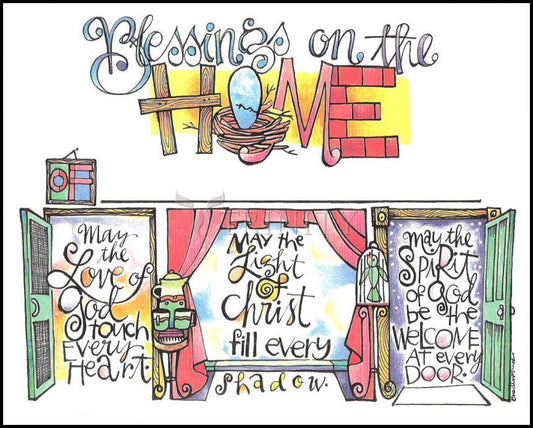 Blessings on the
HOME
OF
May
the
Love of
God
touch
Every
Heart.
MAY the
Light
of
Christ
fill every
shadow.
may the
SPiRiT
of God
be the
WELCOME
AT every
DOOR.